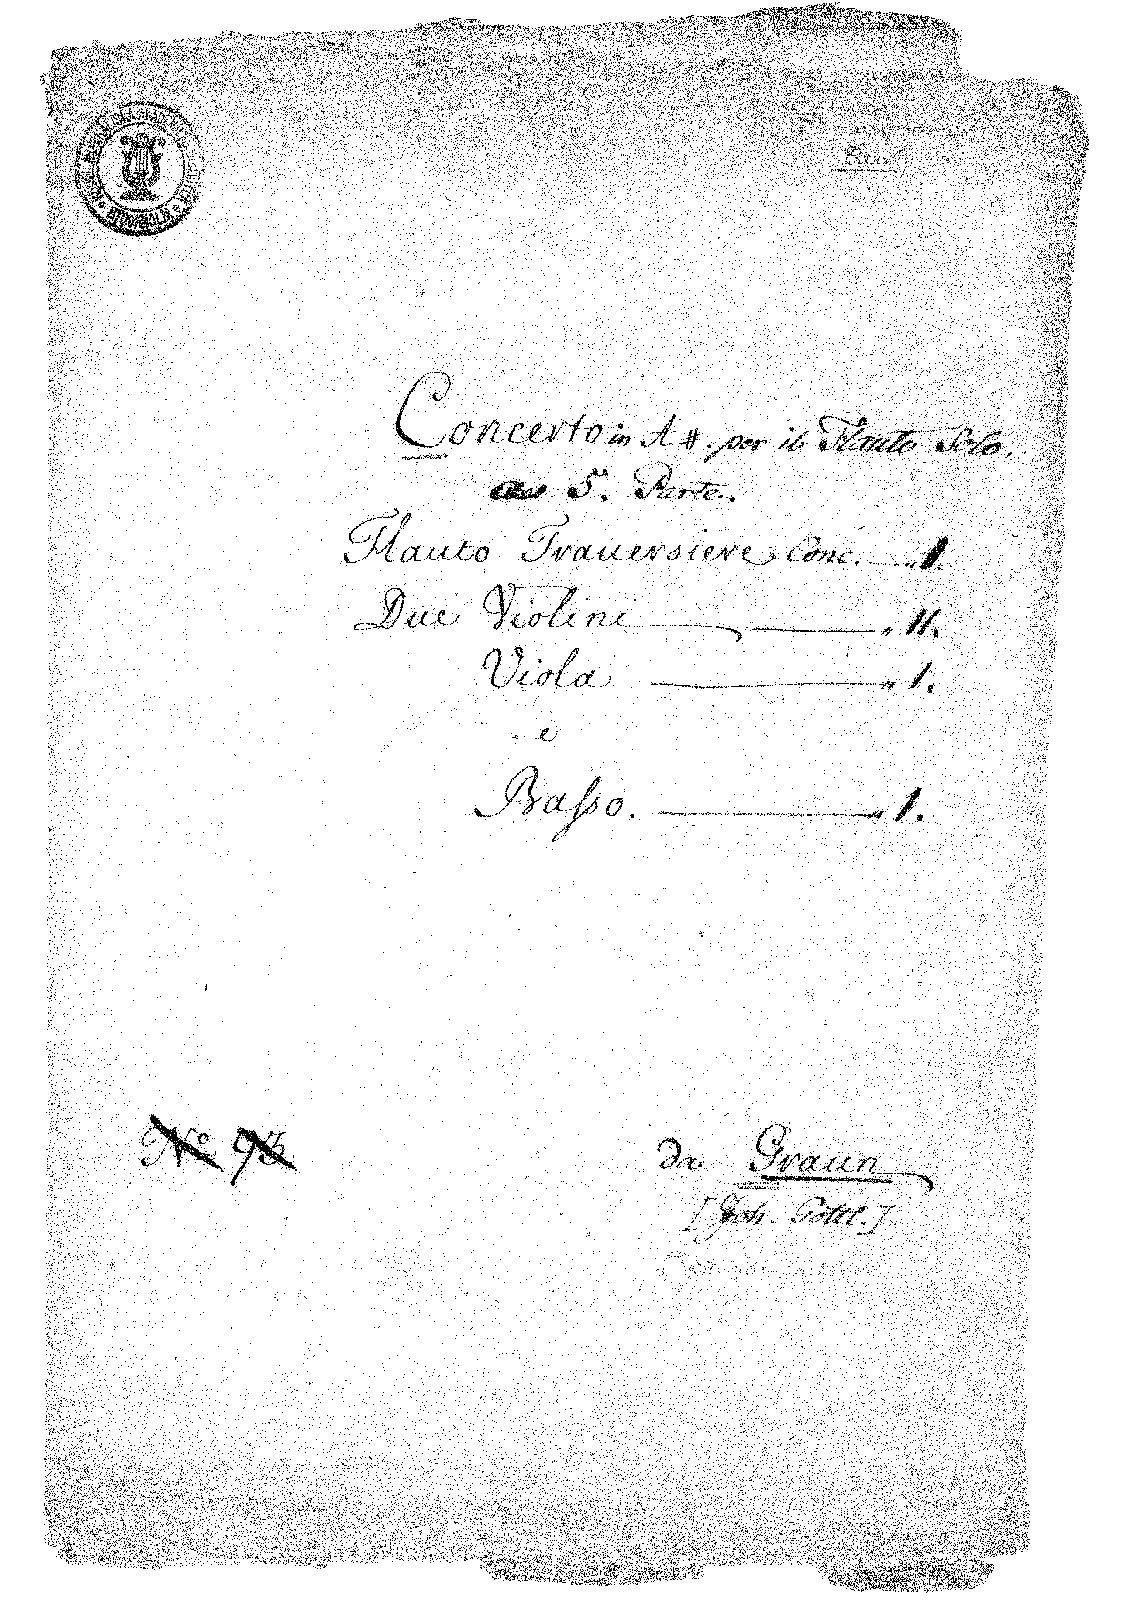 Concerto in A #. per il Flauto Solo.
5. Parte.
Flauto Traversiere Conc. „ I.
Due Violini „ II.
Viola „ 1.
e
Basso. „ 1.
No 93
da Graun
[Joh. Gottl.]